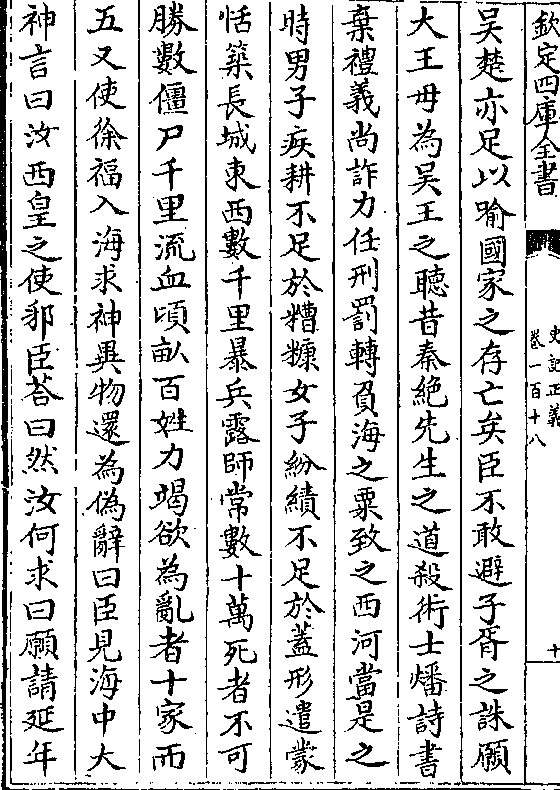 欽定四庫全書
史記正義
卷一百十八
十
吳楚亦足以喻國家之存亡矣臣不敢避子胥之誅願
大王毋為吳王之聽昔秦絶先生之道殺術士燔詩書
棄禮義尚詐力任刑罰轉負海之粟致之西河當是之
時男子疾耕不足於糟糠女子紛績不足於蓋形遣蒙
恬築長城東西數千里暴兵露師常數十萬死者不可
勝數僵尸千里流血頃畝百姓力竭欲為亂者十家而
五又使徐福入海求神異物還為偽辭曰臣見海中大
神言曰汝西皇之使邪臣荅曰然汝何求曰願請延年